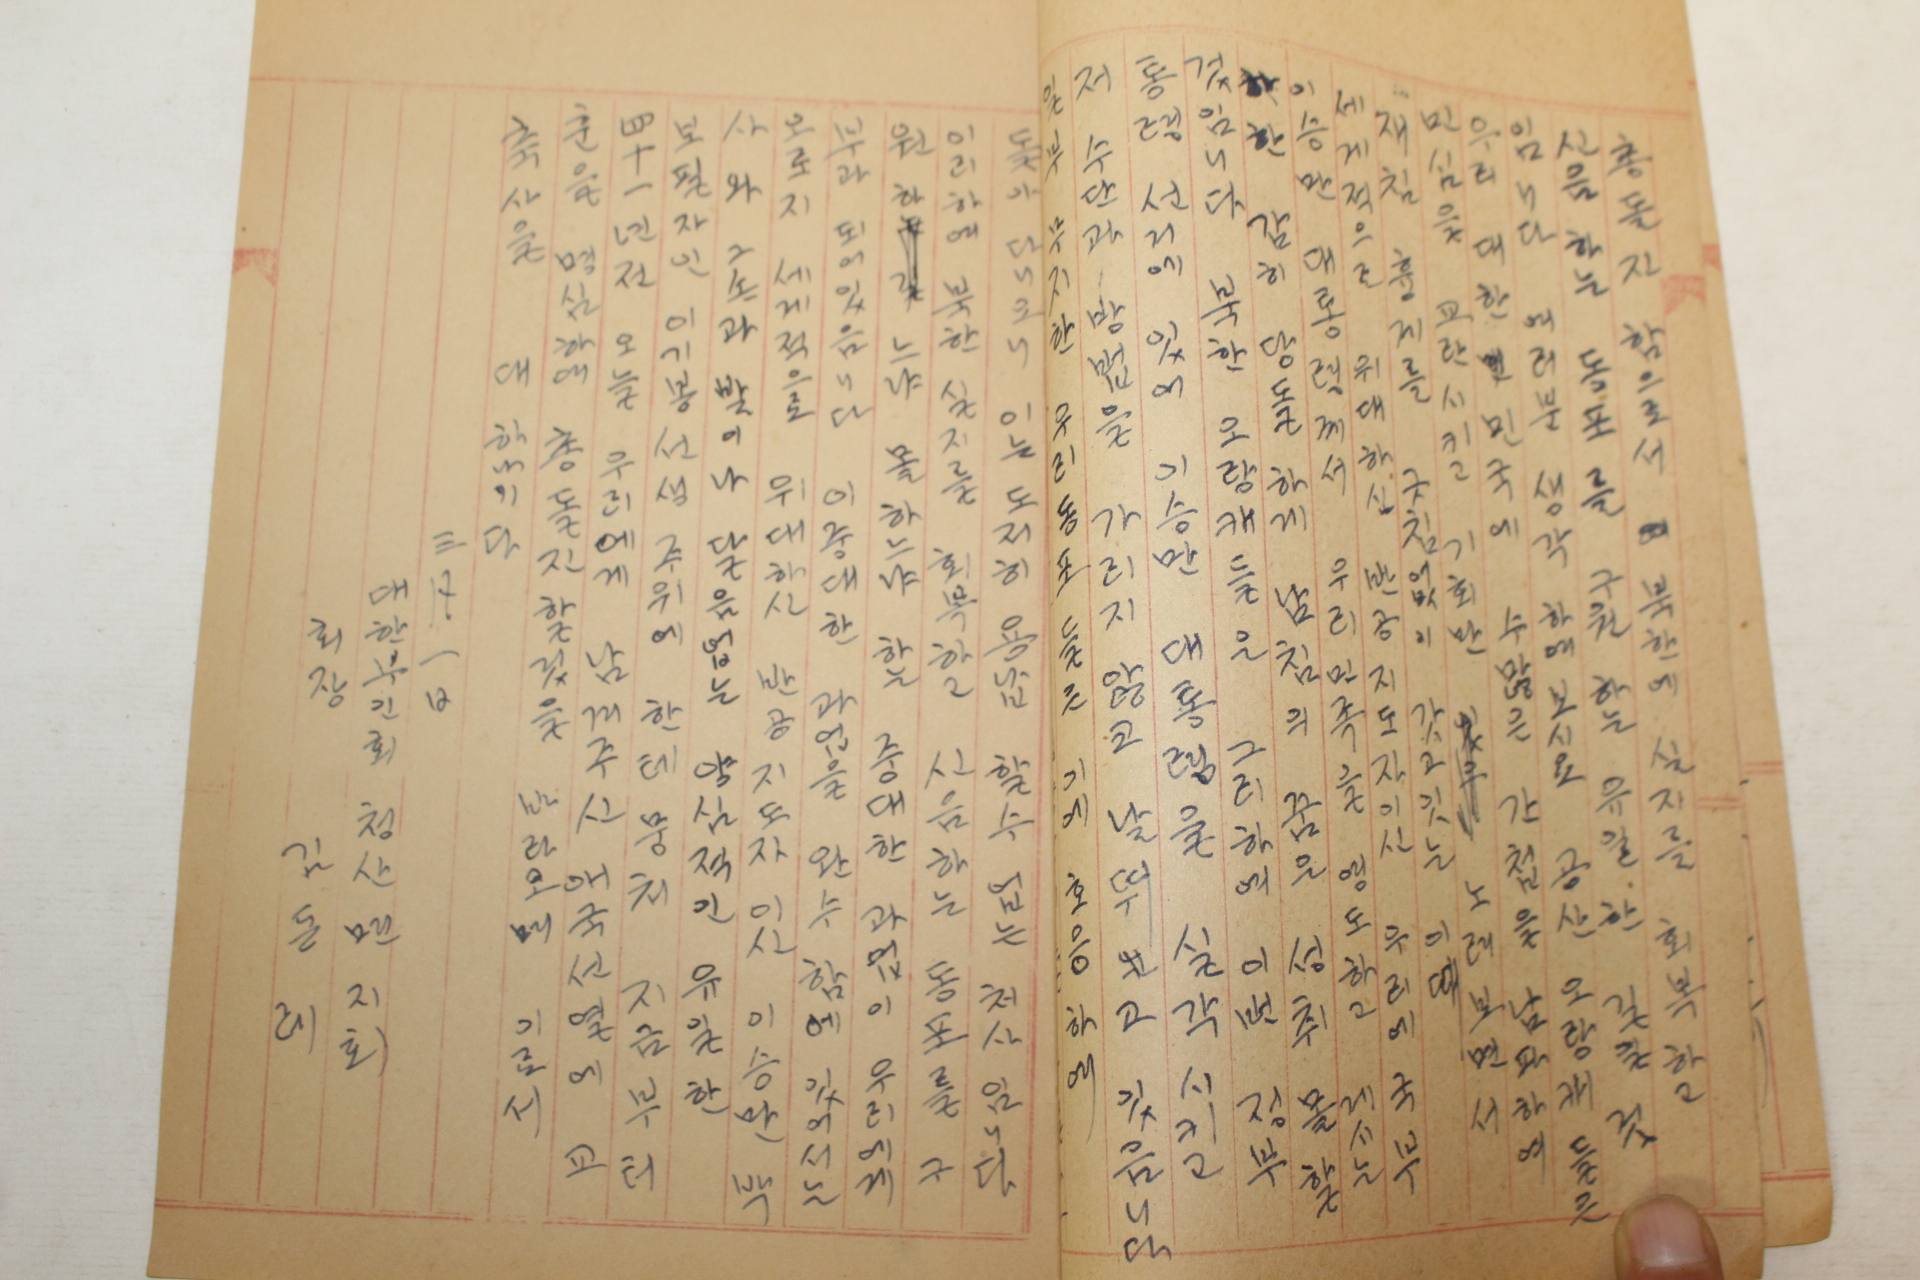 총돌진 함으로서 북한에 실지를 회복하고
신음하는 동포를 구원하는 유일한 길일 것
임니다 여러분 생각하여 보시요 공산 오랑캐들은
우리 대한민국에 수많은 간첩을 남파하여
민심을 교란시키고 기회만 노레보면서
재침 흉게를 긋침없이 갓고잇는 이때
세게적으로 위대하신 반공지도자이신 우리에 국부
이승만 대통령께서 우리 민족을 영도하고 게시는
한 감히 당돌하게 남침의 꿈은 성취 몰할
것임니다 북한 오랑캐들은 그리하여 이번 정부
통령 선거에 잇어 이승만 대통령을 실각시키고
저 수단과 방법을 가리지 않고 날뛰고 잇음니다
일부 무지한 우리동포들은 기에 호응하여
돌아 다니그니 이는 도저히 용납 할수 없는 처사임니다
이리하여 북한 실지를 회복하고 신음하는 동포를 구
원하느냐 몰하느냐 하는 중대한 과업이 우리에게
부과되어 있음니다 이중대한 과업을 완수함에 있어서는
오로지 세게적으로 위대하신 반공지도자이신 이승만 박
사와 그손과 발이나 달음없는 양심적인 유일한
보필자인 이기붕 선생 주위에 한데 뭉처 지금부터
四十一년전 오늘 우리에게 남겨주신 애국선열에 교
훈을 명심하여 총돌진할것을 바라오며 이로서
축사을 대하나이다
三. 一
대한부인회 청산면 지회
회장
김 돈 례